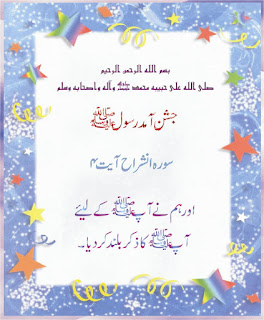 بسم الله الرحمن الرحيم
صلى الله على حبيبه محمد ﷺ وآله واصحابه وسلم
جشن آمد رسول ﷺ
سورہ انشراح آیت ۴
اور ہم نے آپ ﷺ کے لیئے
آپ ﷺ کا ذکر بلند کر دیا۔۔